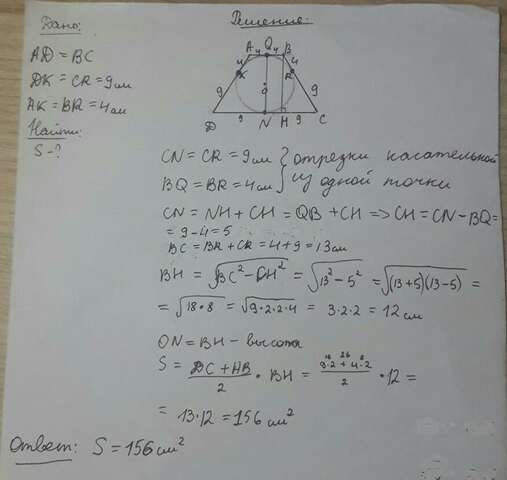 Дано:
AD = BC
DK = CR = 9 см
AK = BR = 4 см
Найти:
S - ?
Решение:
A 4 Q 4 B
4 K 4 R
9 O 9
D 9 N H 9 C
CN = CR = 9 см } отрезки касательной
BQ = BR = 4 см } из одной точки
CN = NH + CH = QB + CH => CH = CN - BQ =
= 9 - 4 = 5
BC = BR + CR = 4 + 9 = 13 см
BH = √BC² - CH² = √13² - 5² = √(13+5)(13-5) =
= √18*8 = √9*2*2*4 = 3*2*2 = 12 см
QN = BH - высота
S = DC + AB / 2 * BH = 9*2 + 4*2 / 2 * 12 =
18 26 8
= 13*12 = 156 см²
Ответ: S = 156 см²